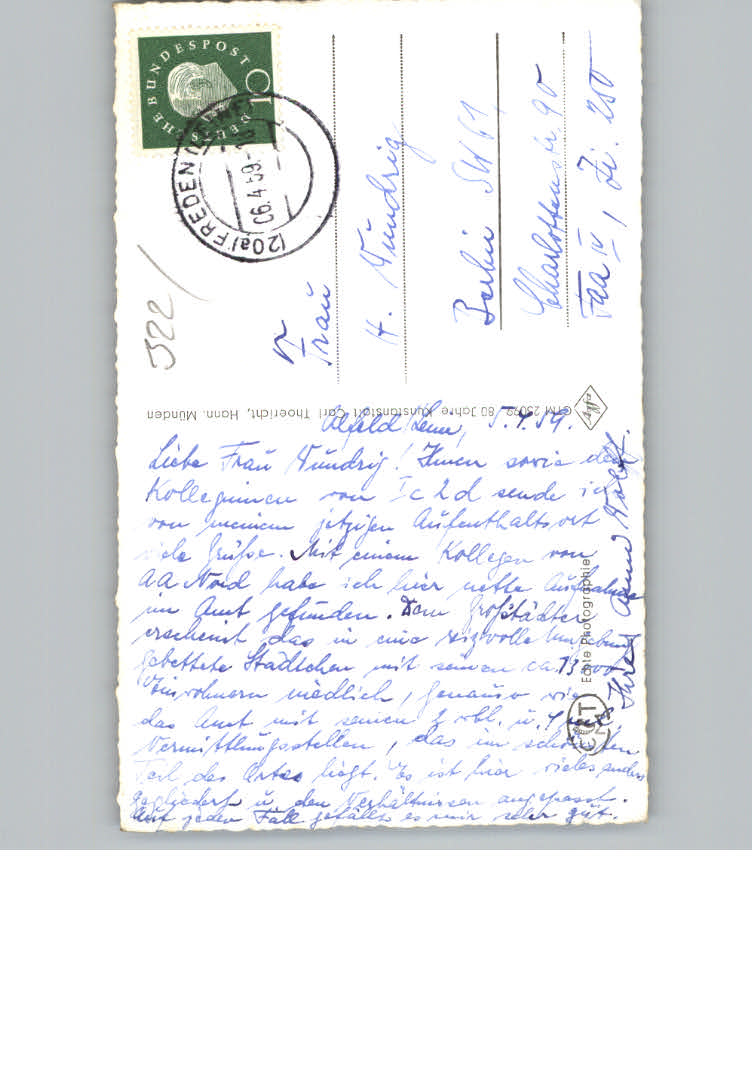 DEUTSCHE BUNDESPOST
10
(20a) FREDEN (LEINE)
06.4.59.-18
522/
Frau
H. Wündrig
Berlin SW 61
Charlottenstr. 90
FAA IV, Zi. 250
GTM 25092 80 Jahre Kunstanstalt Carl Thoericht, Hann. Münden
Agfa
Echte Photographie
Alfeld/Leine, 5.4.59.
Liebe Frau Wündrig! Ihnen sowie den
Kolleginnen von Ic2d sende ich
von meinem jetzigen Aufenthaltsort
viele Grüße. Mit einem Kollegen von
AA Nord habe ich hier nette Aufnahme
im Amt gefunden. Dem Großstädter
erscheint das in eine reizvolle Umgebung
gebettete Städtchen mit seinen ca. 13000
Einwohnern niedlich, genauso wie
das Amt mit seinen 2 wbl. u. 4 ml.
Vermittlungsstellen, das im schönsten
Teil des Ortes liegt. Es ist hier vieles anders
gegliedert u. den Verhältnissen angepasst.
Auf jeden Fall gefällt es mir sehr gut.
Ihre